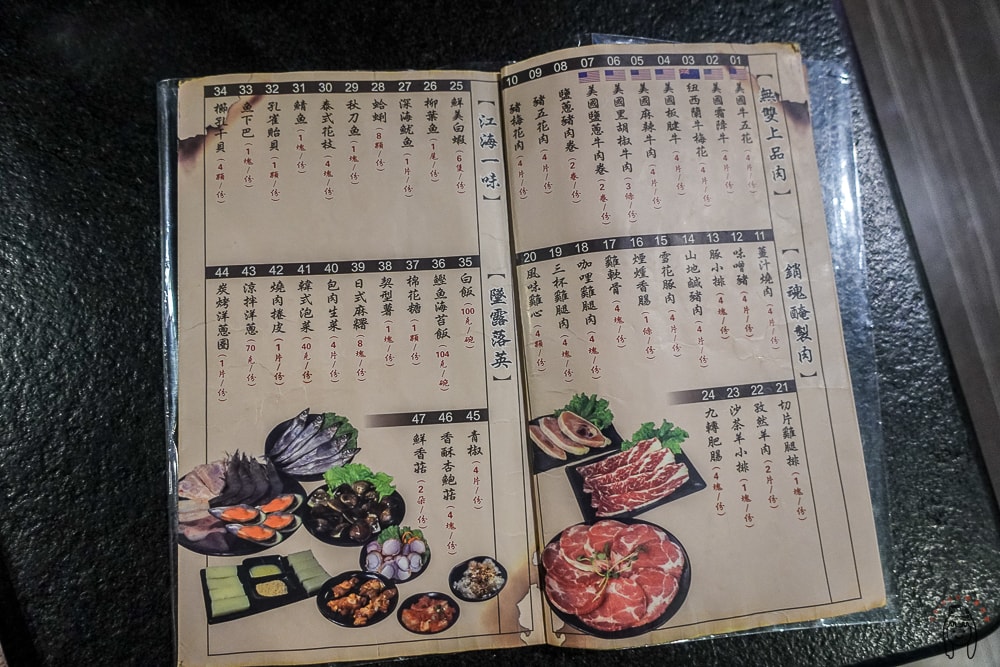 【無雙上品肉】
01 美國牛五花(4片/份)
02 美國霜降牛(4片/份)
03 紐西蘭牛梅花(4片/份)
04 美國板腱牛(4片/份)
05 美國麻辣牛肉(4片/份)
06 美國黑胡椒牛肉(3條/份)
07 美國鹽蔥牛肉卷(2卷/份)
08 鹽蔥豬肉卷(2卷/份)
09 豬五花肉(4片/份)
10 豬梅花肉(4片/份)
【銷魂醃製肉】
11 薑汁燒肉(4片/份)
12 味噌豬(4片/份)
13 豚小排(4塊/份)
14 山地鹹豬肉(4片/份)
15 雪花豚肉(4片/份)
16 煙燻香腸(1條/份)
17 雞軟骨(4塊/份)
18 咖哩雞腿肉(4塊/份)
19 三杯雞腿肉(4塊/份)
20 風味雞心(4顆/份)
21 切片雞腿排(1塊/份)
22 孜然羊肉(2片/份)
23 沙茶羊小排(1塊/份)
24 九轉肥腸(4塊/份)
【江海一味】
25 鮮美白蝦(6隻/份)
26 柳葉魚(1尾/份)
27 深海魷魚(1片/份)
28 蛤蜊(8顆/份)
29 秋刀魚(1塊/份)
30 泰式花枝(4塊/份)
31 鯖魚(1塊/份)
32 孔雀貽貝(1顆/份)
33 魚下巴(1塊/份)
34 櫛孔干貝(4顆/份)
【墜露落英】
35 白飯(100元/碗)
36 鰹魚海苔飯(104元/碗)
37 棉花糖(1顆/份)
38 契型薯(1塊/份)
39 日式麻糬(8塊/份)
40 包肉生菜(4片/份)
41 韓式泡菜(40元/份)
42 燒肉捲皮(1片/份)
43 涼拌洋蔥(70元/份)
44 炭烤洋蔥圈(1片/份)
45 青椒(4片/份)
46 香酥杏鮑菇(4塊/份)
47 鮮香菇(2朵/份)